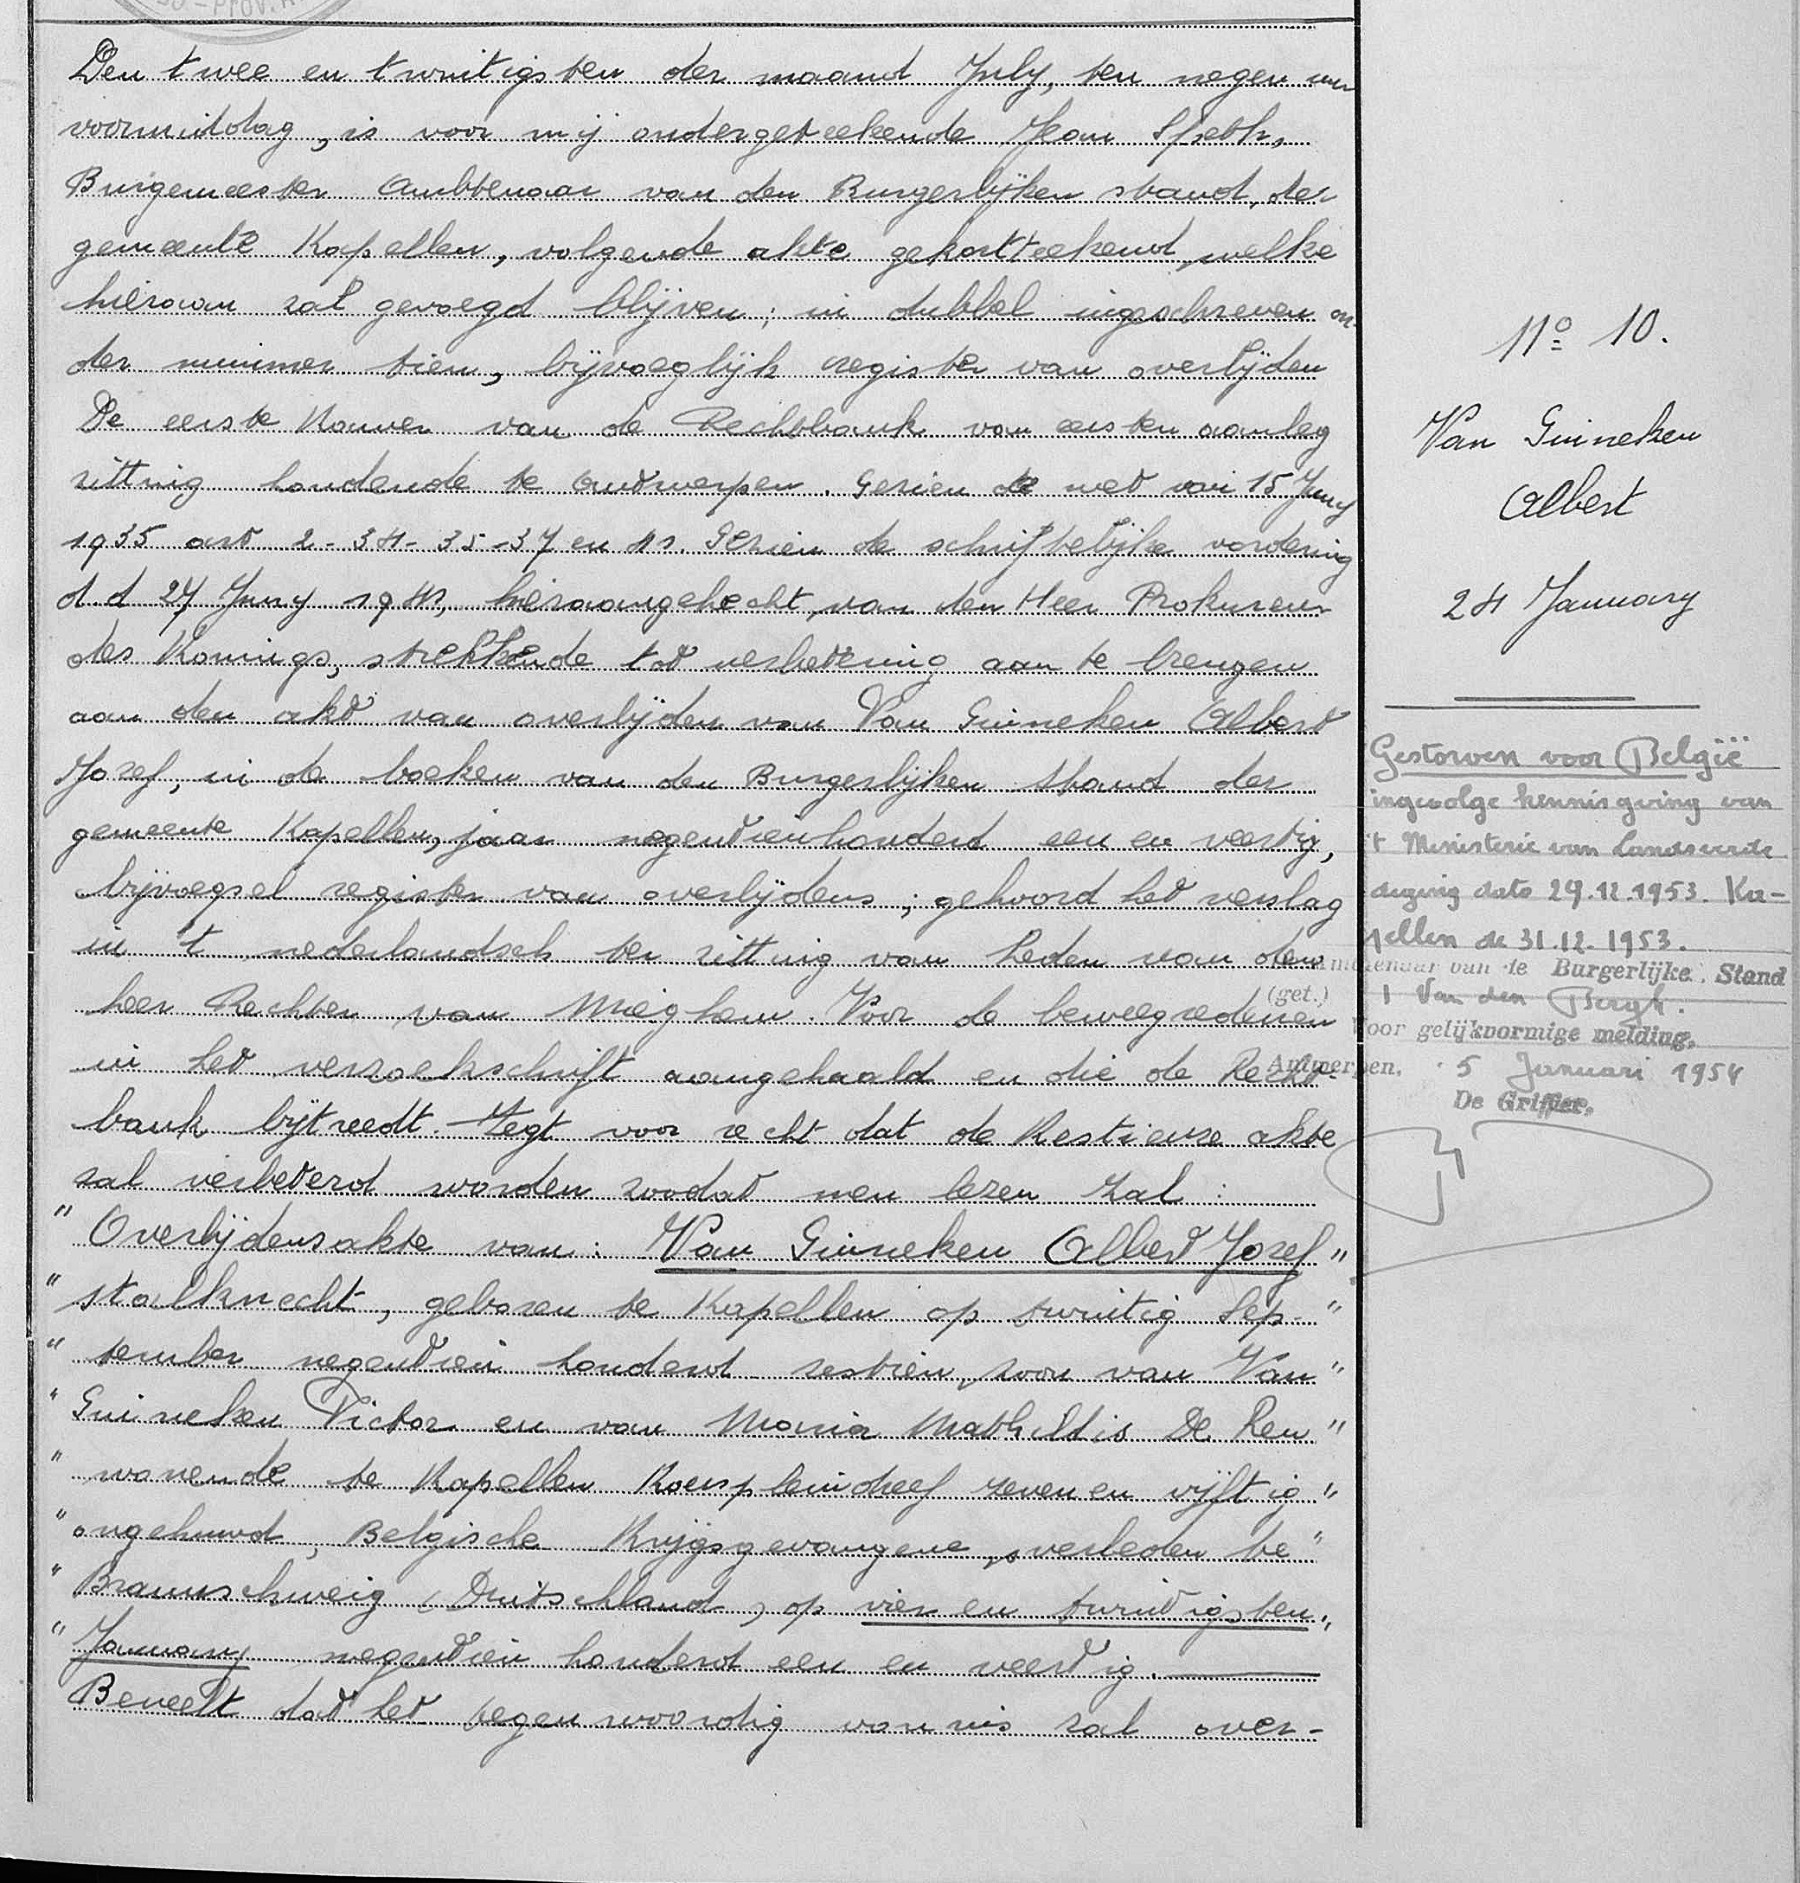 PROV. A
Den twee en twintigsten der maand July, ten negen uur
voormiddag, is voor mij ondergeteekende Jean Speth,
Burgemeester Ambtenaar van den Burgerlijken stand, der
gemeente Kapellen, volgende akte gekortteekend, welke
hieraan zal gevoegd blijven; in dubbel ingeschreven on-
der nummer tien, bijvoeglijk register van overlijden
De eerste Kamer van de Rechtbank van eersten aanleg
zitting houdende te Antwerpen. Gezien de wet van 15 Juny
1935 art 2-34-35-37 en 41. Gezien de schriftelijke vordering
d.d 27 Juny 1941, hieraangehecht, van den Heer Prokureur
des Konings, strekkende tot verbetering aan te brengen
aan den akt van overlijden van Van Ginneken Albert
Jozef, in de boeken van den Burgerlijken Stand der
gemeente Kapellen, jaar negentienhonderd een en veertig,
bijvoegsel register van overlijdens; gehoord het verslag
in 't nederlandsch ter zitting van heden van den
heer Rechter van Mieghem. Voor de beweegredenen
in het verzoekschrift aangehaald en die de Recht-
bank bijtreedt. Zegt voor recht dat de kestieuze akte
zal verbeterd worden zoodat men lezen zal :
" Overlijdensakte van : Van Ginneken Albert Jozef "
" stalknecht, geboren te Kapellen op twintig Sep- "
" tember negentien honderd zestien, zoon van Van "
" Ginneken Victor en van Maria Mathildis De Ren "
" wonende te Kapellen Koerspleindreef zeven en vijftig "
" ongehuwd, Belgische Krijgsgevangene, overleden te "
" Braunschweig (Duitschland) op vier en twintigsten "
" January negentien honderd een en veertig.
Beveelt dat het tegenwoordig vonnis zal over-
N° 10.
Van Ginneken
Albert
24 January
Gestorven voor België
ingevolge kennisgeving van
't Ministerie van Landsverde
diging dato 29.12.1953. Ka-
pellen de 31.12.1953.
Ambtenaar van de Burgerlijke Stand
(get.) Van den Bergh.
Voor gelijkvormige melding,
Antwerpen, 5 Januari 1954
De Griffier,